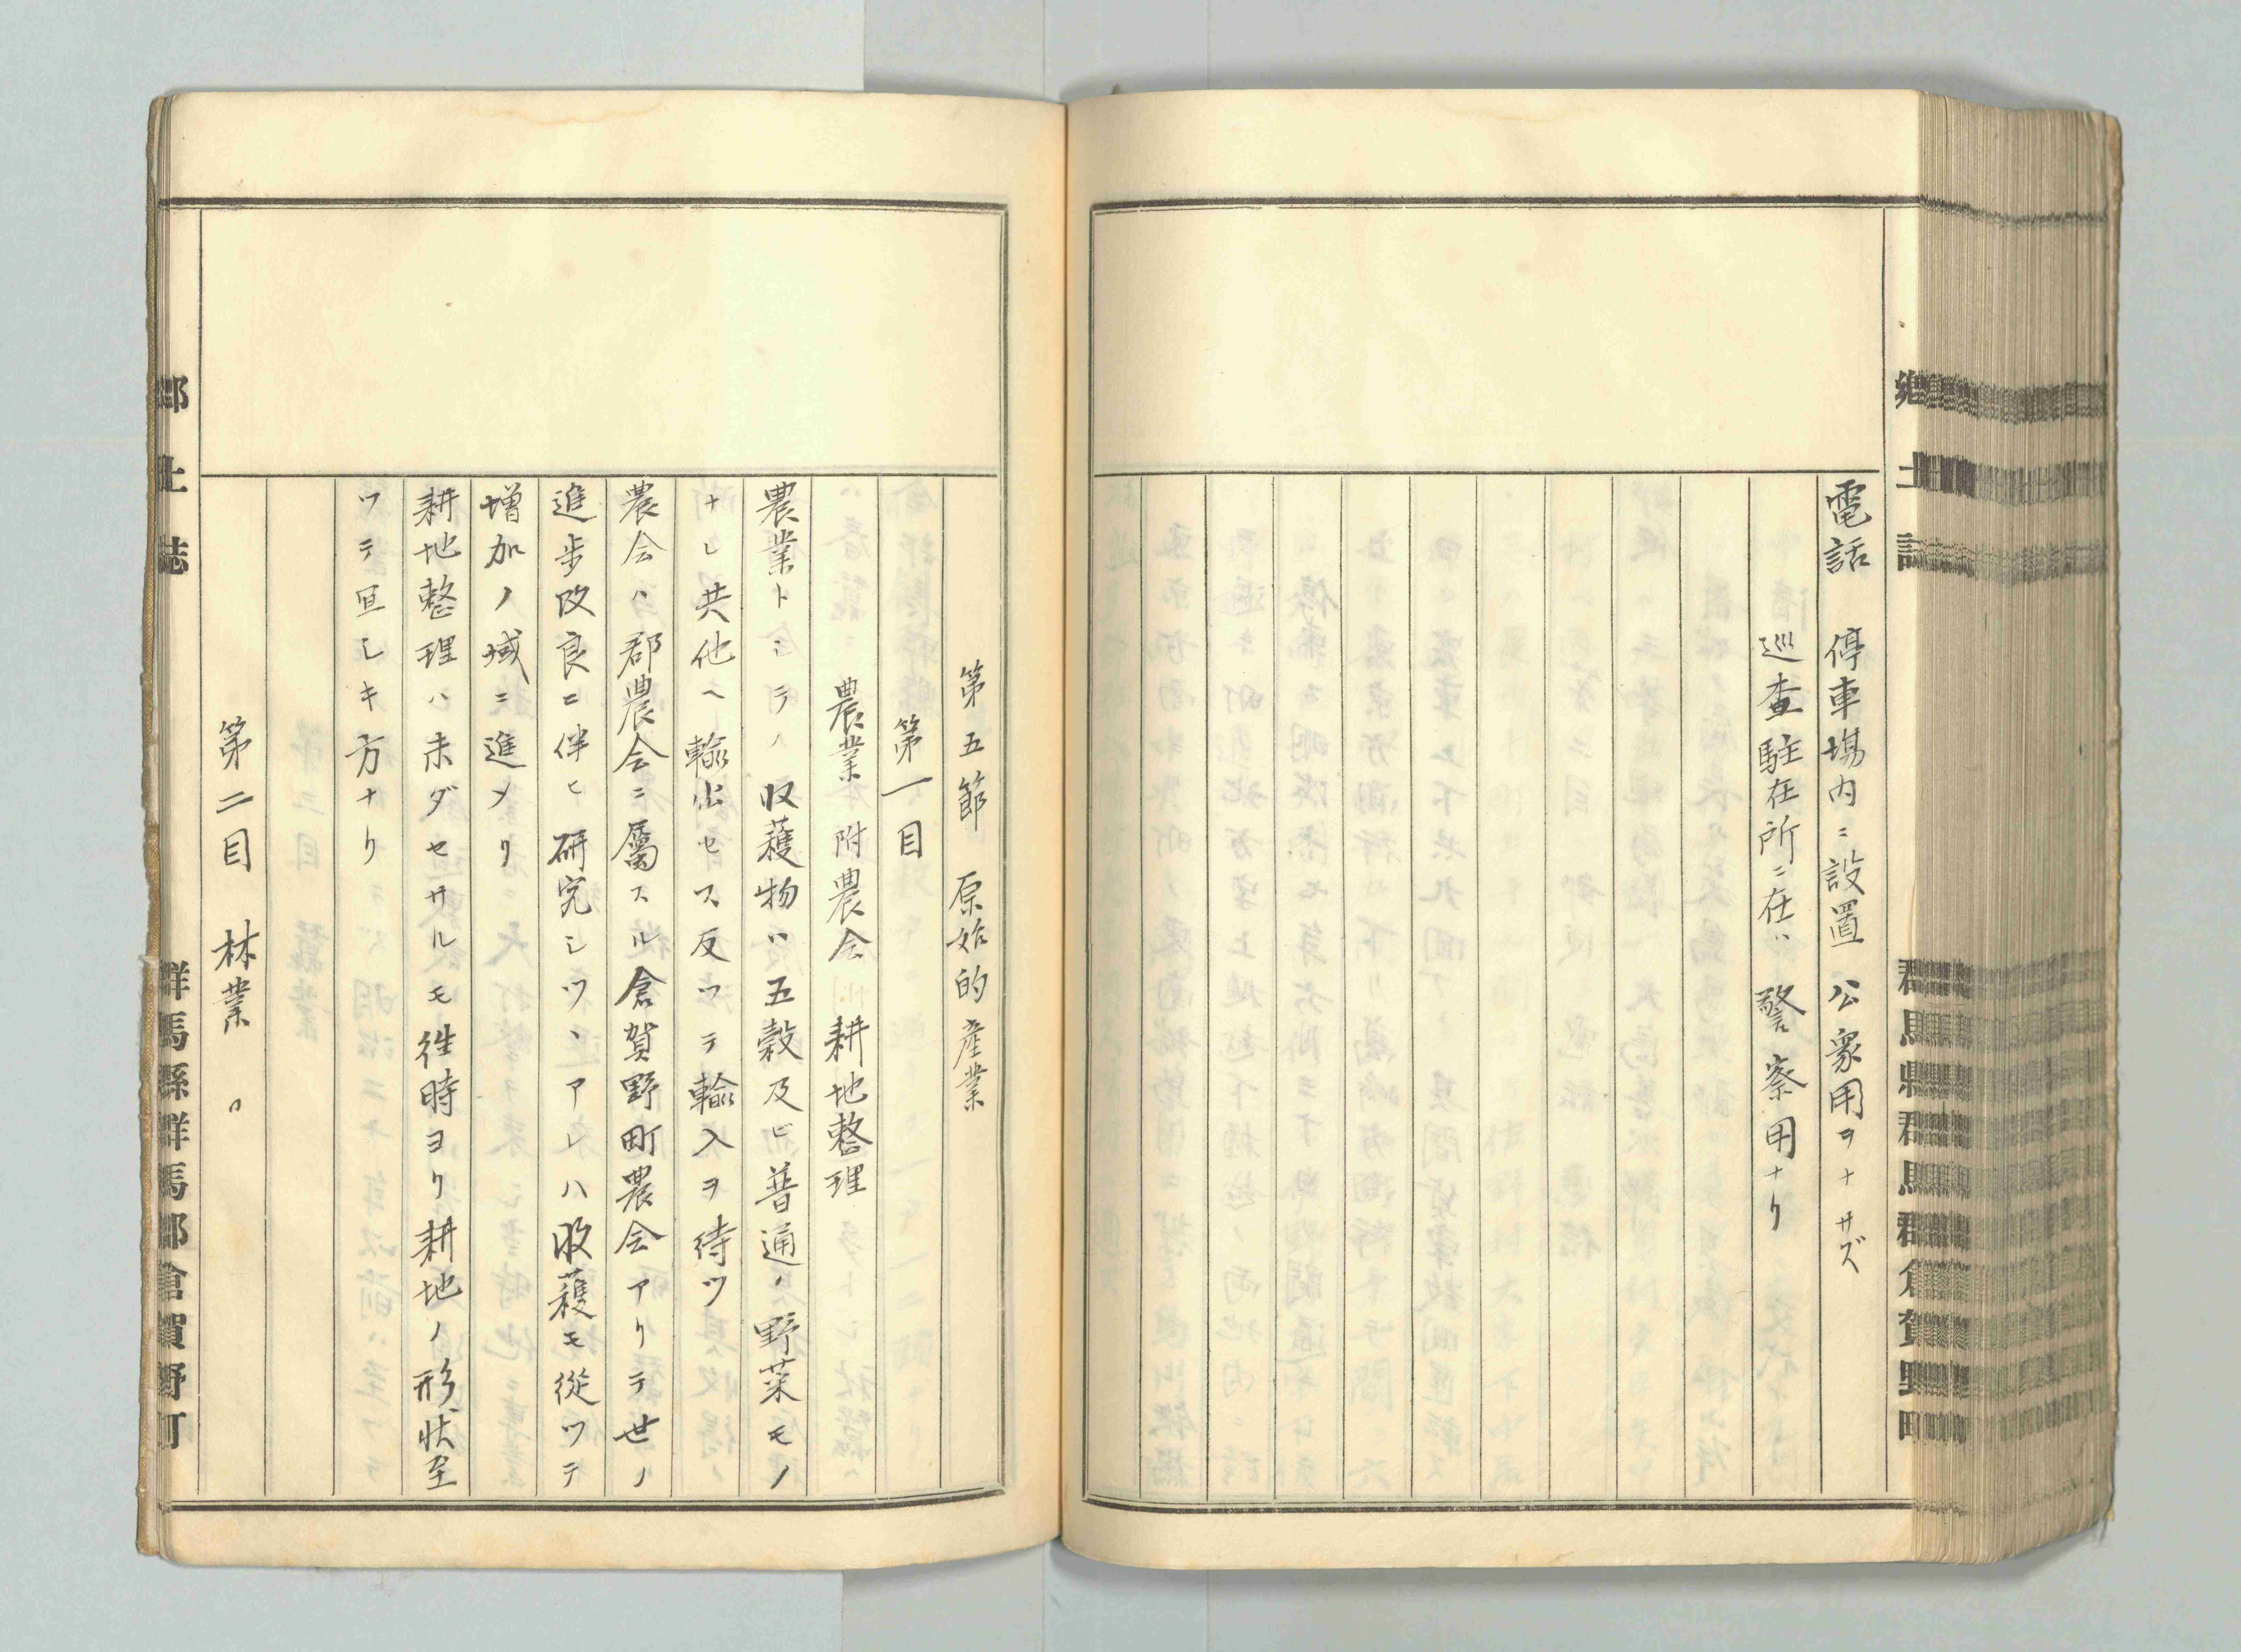 電話 停車場内ニ設置 公衆用ヲナサズ
巡査駐在所ニ在ハ 警察用ナリ
第五節 原始的産業
第一目
農業 附農会 耕地整理
農業トシテノ収穫物ハ五穀及ビ普通ノ野菜モノ
ナレ共他ヘ輸出セス反ツテ輸入ヲ待ツ
農会ハ郡農会ニ属スル倉賀野町農会アリテ世ノ
進歩改良ニ伴ヒ研究シツヽアレハ収穫モ従ツテ
増加ノ域ニ進メリ
耕地整理ハ未ダセサルモ往時ヨリ耕地ノ形状至
ツテ宜シキ方ナリ
第二目 林業
郷土誌 群馬縣群馬郡倉賀野町